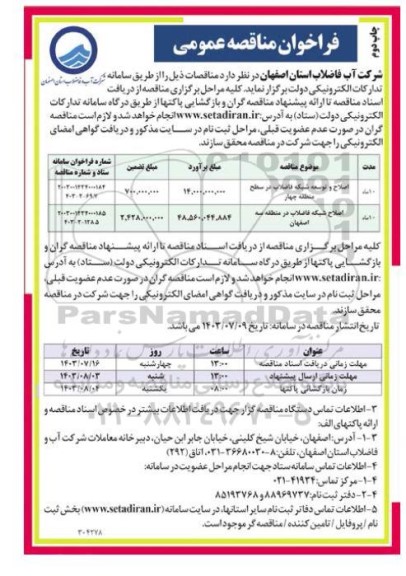 چاپ دوم
فراخوان مناقصه عمومی
شرکت آب فاضلاب استان اصفهان
شرکت آب فاضلاب استان اصفهان در نظر دارد مناقصات ذیل را از طریق سامانه
تدارکات الکترونیکی دولت برگزار نماید. کلیه مراحل برگزاری مناقصه از دریافت
اسناد مناقصه تا ارائه پیشنهاد مناقصه گران و بازگشایی پاکتها از طریق درگاه سامانه تدارکات
الکترونیکی دولت (ستاد) به آدرس: www.setadiran.ir انجام خواهد شد و لازم است مناقصه
گران در صورت عدم عضویت قبلی، مراحل ثبت نام در سایت مذکور و دریافت گواهی امضای
الکترونیکی را جهت شرکت در مناقصه محقق سازند.
مدت موضوع مناقصه مبلغ برآورد مبلغ تضمین شماره فراخوان سامانه ستاد و شماره مناقصه
اصلاح و توسعه شبکه فاضلاب در سطح منطقه چهار ۱۴,۰۰۰,۰۰۰,۰۰۰ ۷۰۰,۰۰۰,۰۰۰
اصلاح شبکه فاضلاب در منطقه سه اصفهان ۴۸,۵۶۰,۰۴۴,۸۸۴ ۲,۴۲۸,۰۰۰,۰۰۰
کلیه مراحل برگزاری مناقصه از دریافت اسناد مناقصه تا ارائه پیشنهاد مناقصه گران و
بازگشایی پاکتها از طریق درگاه سامانه تدارکات الکترونیکی دولت (ستاد) به آدرس
www.setadiran.ir: انجام خواهد شد و لازم است مناقصه گران در صورت عدم عضویت قبلی،
مراحل ثبت نام در سایت مذکور و دریافت گواهی امضای الکترونیکی را جهت شرکت در مناقصه
محقق سازند.
ParsNamadData
تاریخ انتشار مناقصه در سامانه: تاریخ ۱۴۰۳/۰۷/۰۹ می باشد.
عنوان ساعت روز تاریخ
مهلت زمانی دریافت اسناد مناقصه ۱۳:۰۰ چهارشنبه ۱۴۰۳/۰۷/۱۶
مهلت زمانی ارسال پیشنهاد ۱۳:۰۰ شنبه ۱۴۰۳/۰۸/۰۳
زمان بازگشائی پاکتها ۰۸:۰۰ یکشنبه ۱۴۰۳/۰۸/۰۴
۳-اطلاعات تماس دستگاه مناقصه گزار جهت دریافت اطلاعات بیشتر در خصوص اسناد مناقصه و
ارائه پاکتهای الف:
۳-۱- آدرس: اصفهان، خیابان شیخ کلینی، خیابان جابر ابن حیان، دبیرخانه معاملات شرکت آب و
فاضلاب استان اصفهان، تلفن: ۸-۰۳۱-۳۶۶۸۰۰۳۰، اتاق (۲۹۲)
۴-اطلاعات تماس سامانه ستاد جهت انجام مراحل عضویت در سامانه:
۴-۱- مرکز تماس: ۴۱۹۳۴-۰۲۱
۴-۲- دفتر ثبت نام: ۸۸۹۶۹۷۳۷ و ۸۵۱۹۳۷۶۸
۵-اطلاعات تماس دفاتر ثبت نام سایر استانها، در سایت سامانه (www.setadiran.ir) بخش ثبت
نام / پروفایل / تامین کننده / مناقصه گر موجود است.
۳۰۴۲۷۸